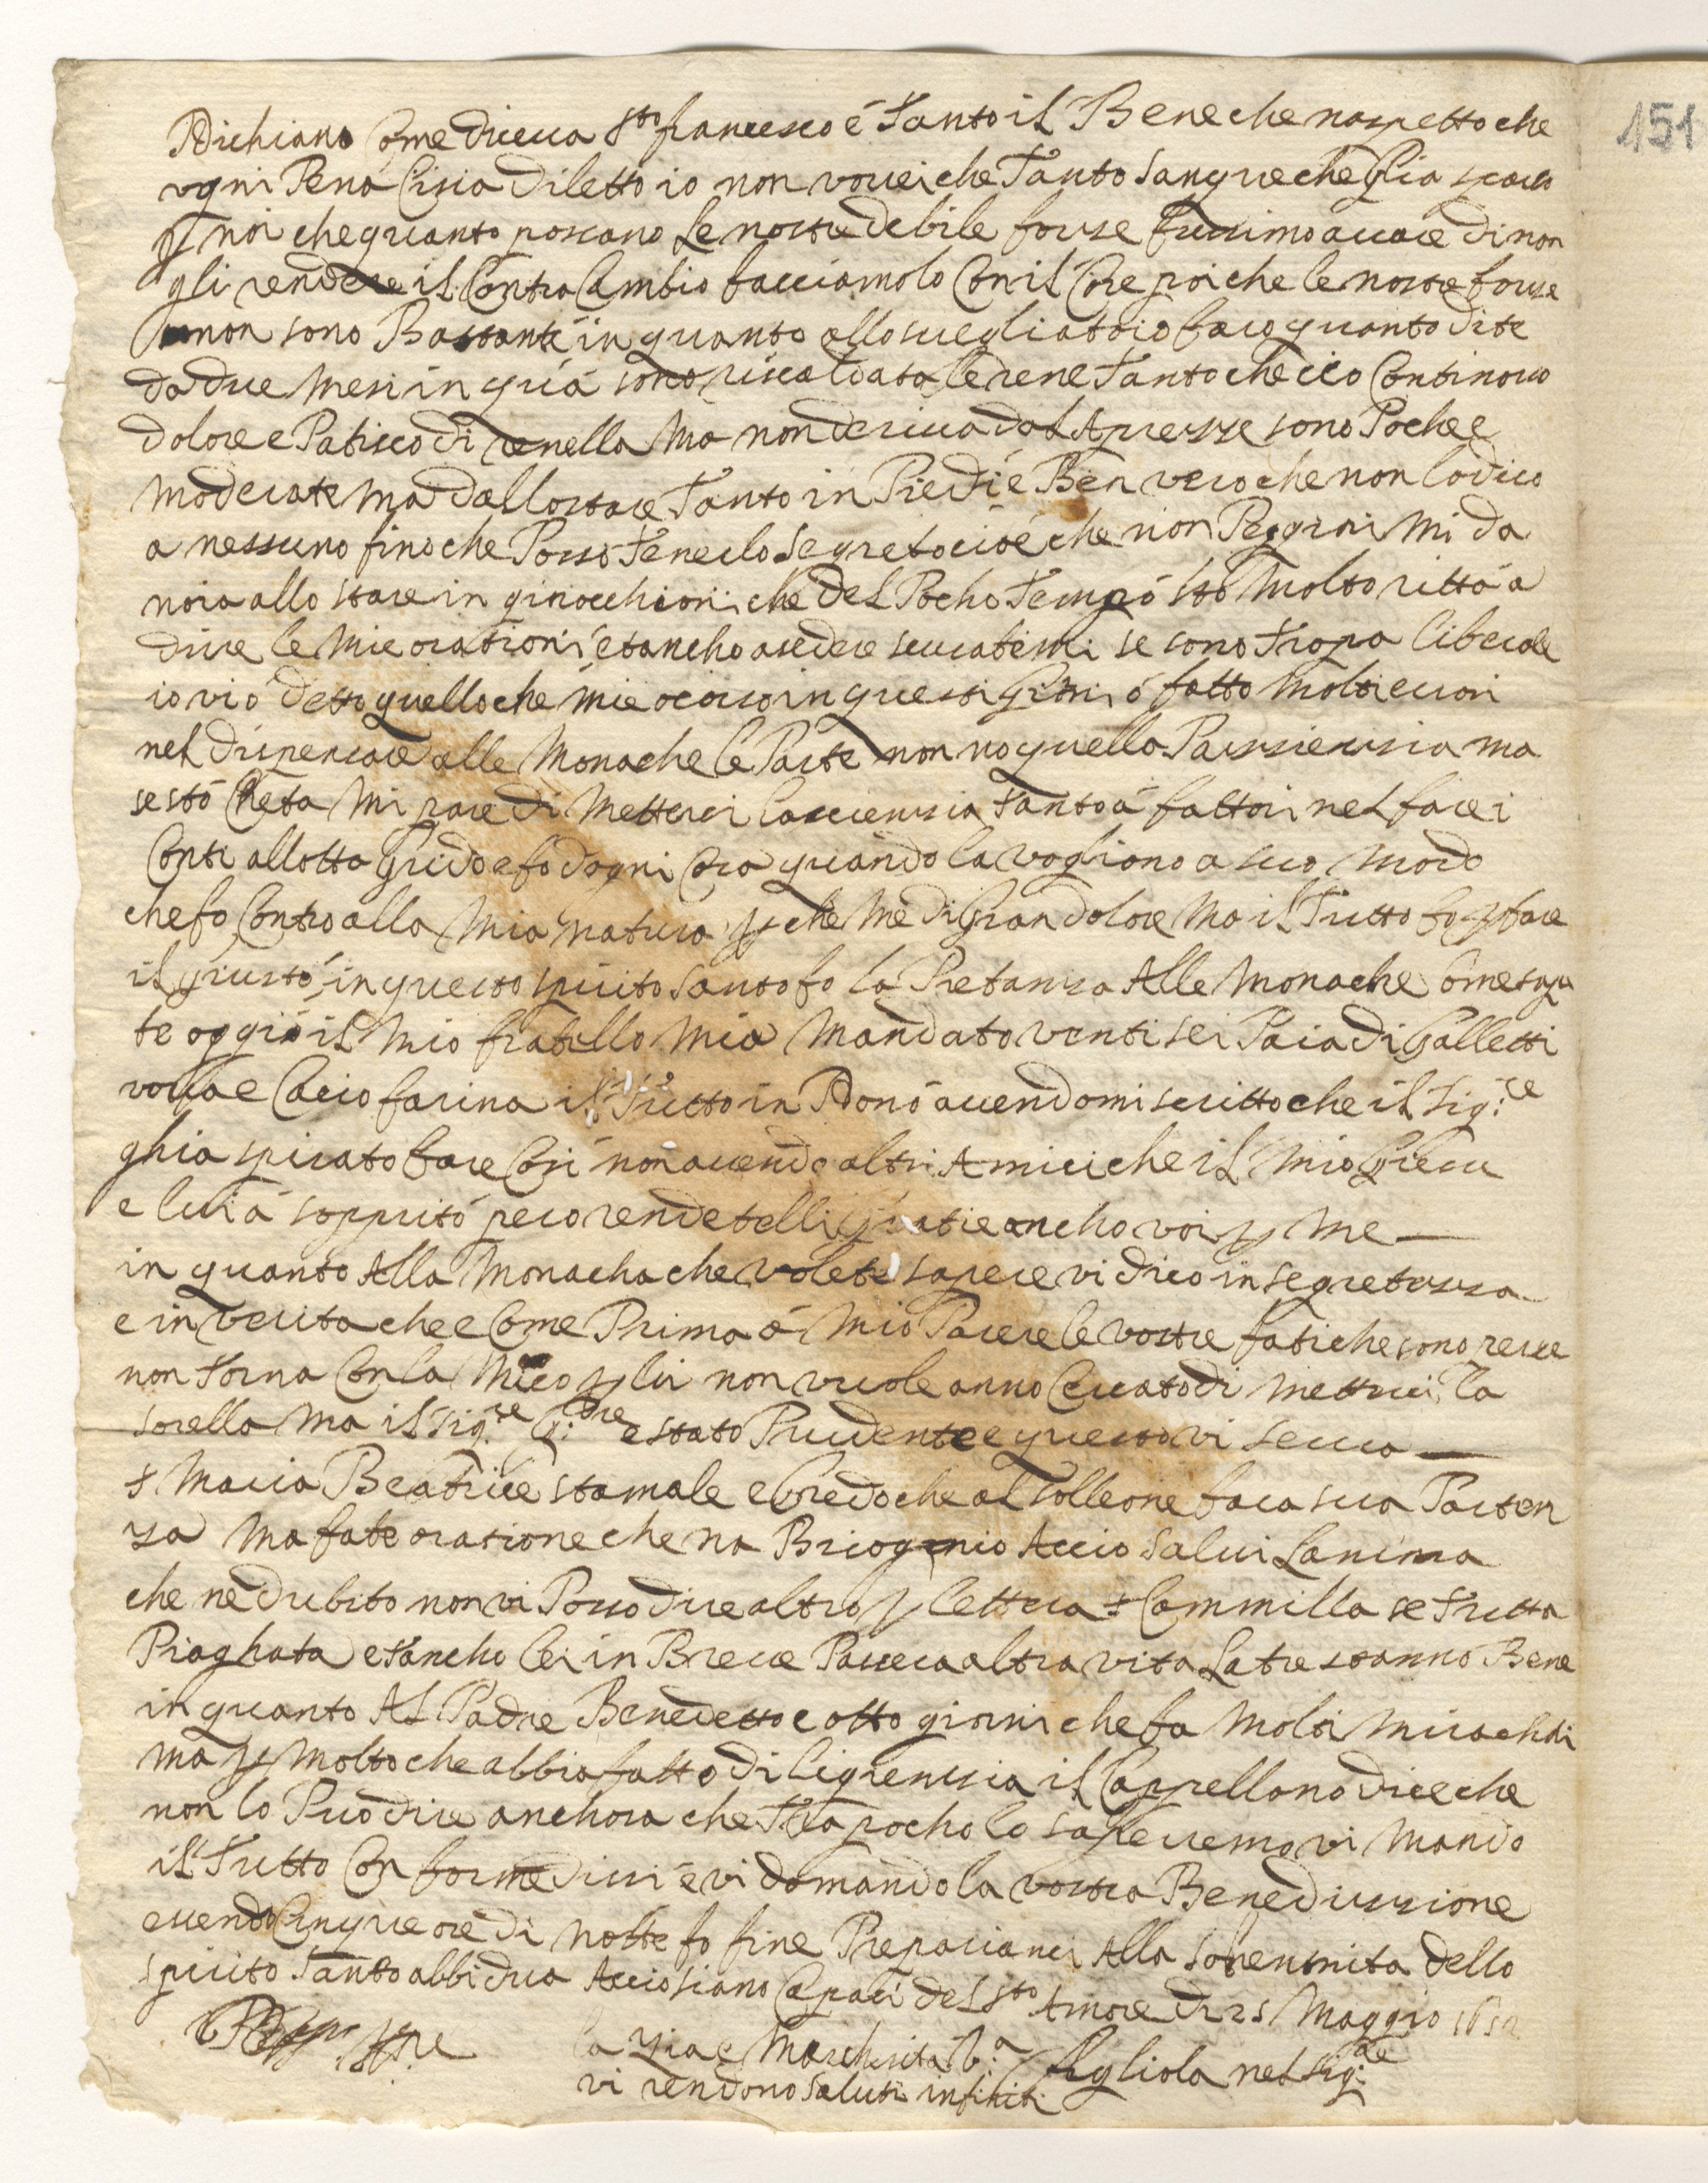 151
Dichiano Come diceva Sto francesco é Tanto il Bene che naspetto che
ogni Pena Cisia diletto io non vorei che Tanto Sangue che Gia sparso
p noi che quanto poscano Le nostre debile forse fussimo avare di non
gli rendere il Contra Cambio facciamolo Con il Core poi che le nostre forse
non sono Bastante in quanto allo svegliatoio faro quanto dite
da due Mesi in quá sono riscaldata le rene Tanto che cio Continovo
dolore e Patisco di renella Ma non deriva dal Aprezze sono Poche e
Moderate Ma dallo stare Tanto in Piedi é Ben vero che non lo dico
a nessuno fino che Posso Tenerlo Segreto cioé che non Peggiri Mi da
noia allo stare in ginocchioni che del Pocho Tempo sto Molto ritta a
dire le Mie orationi et ancho a sedere scusatemi se sono Tropa liberale
io vi ó detto quello che mie ocorso in questi Giorni ó fatto Molti erori
nel dispensare alle Monache le Parte non no quella Pasienzia ma
se stó Cheta Mi pare di Metterci la coscienzia Tanto á fattori nel fare i
Conti allotta Grido e fo dogni Cosa quando la vogliono a suo Modo
che fo Contro alla Mia natura p che Me di Gran dolore Ma il Tutto fo p fare
il giusto, in questo spirito Santo fo la Pietanza Alle Monache Come sapa
te oggi é il Mio fratello Mia Mandato venti sei Paia di Galletti
vova e Cacio farina il Tutto in Dono avendomi scritto che il Sig:re
ghia spirato fare Cosi non avendo altri Amici che il Mio Giesu
e lui á soprito pero rendetelli Gratie ancho voi p Me —
in quanto Alla Monacha che volete sapere vi dico in segretezza
e in verita che e Come Prima á Mio Parere le vostre fatiche sono perse
non Torna Con la Mico p lui non vuole anno Cercato di Metterci la
sorella Ma il Sig:re G:ore e stato Prudente e questo vi serva —
s Maria Beatrice sta male e Credo che al Solleone fara sua Parten
za Ma fate oratione che na Briogonio Accio Salvi Lanima
che ne dubito non vi Posso dire altro p lettera s Cammilla se Tutta
Piaghata et ancho lei in Breve Pasera altra vita Latre stanno Bene
in quanto Al Padre Benedetto e otto giorni che fa Molti Mirachili
Ma p Molto che abbia fatto diligenzia il Cappellano dice che
non lo Puo dire anchora che Tra pocho lo saperemo vi Mando
il Tutto Con forme dissi é vi domando la vostra Benedizzione
essendo Cinque ore di notte fo fine Prepariamci Alla Solennita dello
spirito Santo abbidua Accio siano Capaci del Sto Amore di 25 Maggio 1652
la Zia e Marcherita
vi rendono Saluti infiniti
figliola nel Sig:re